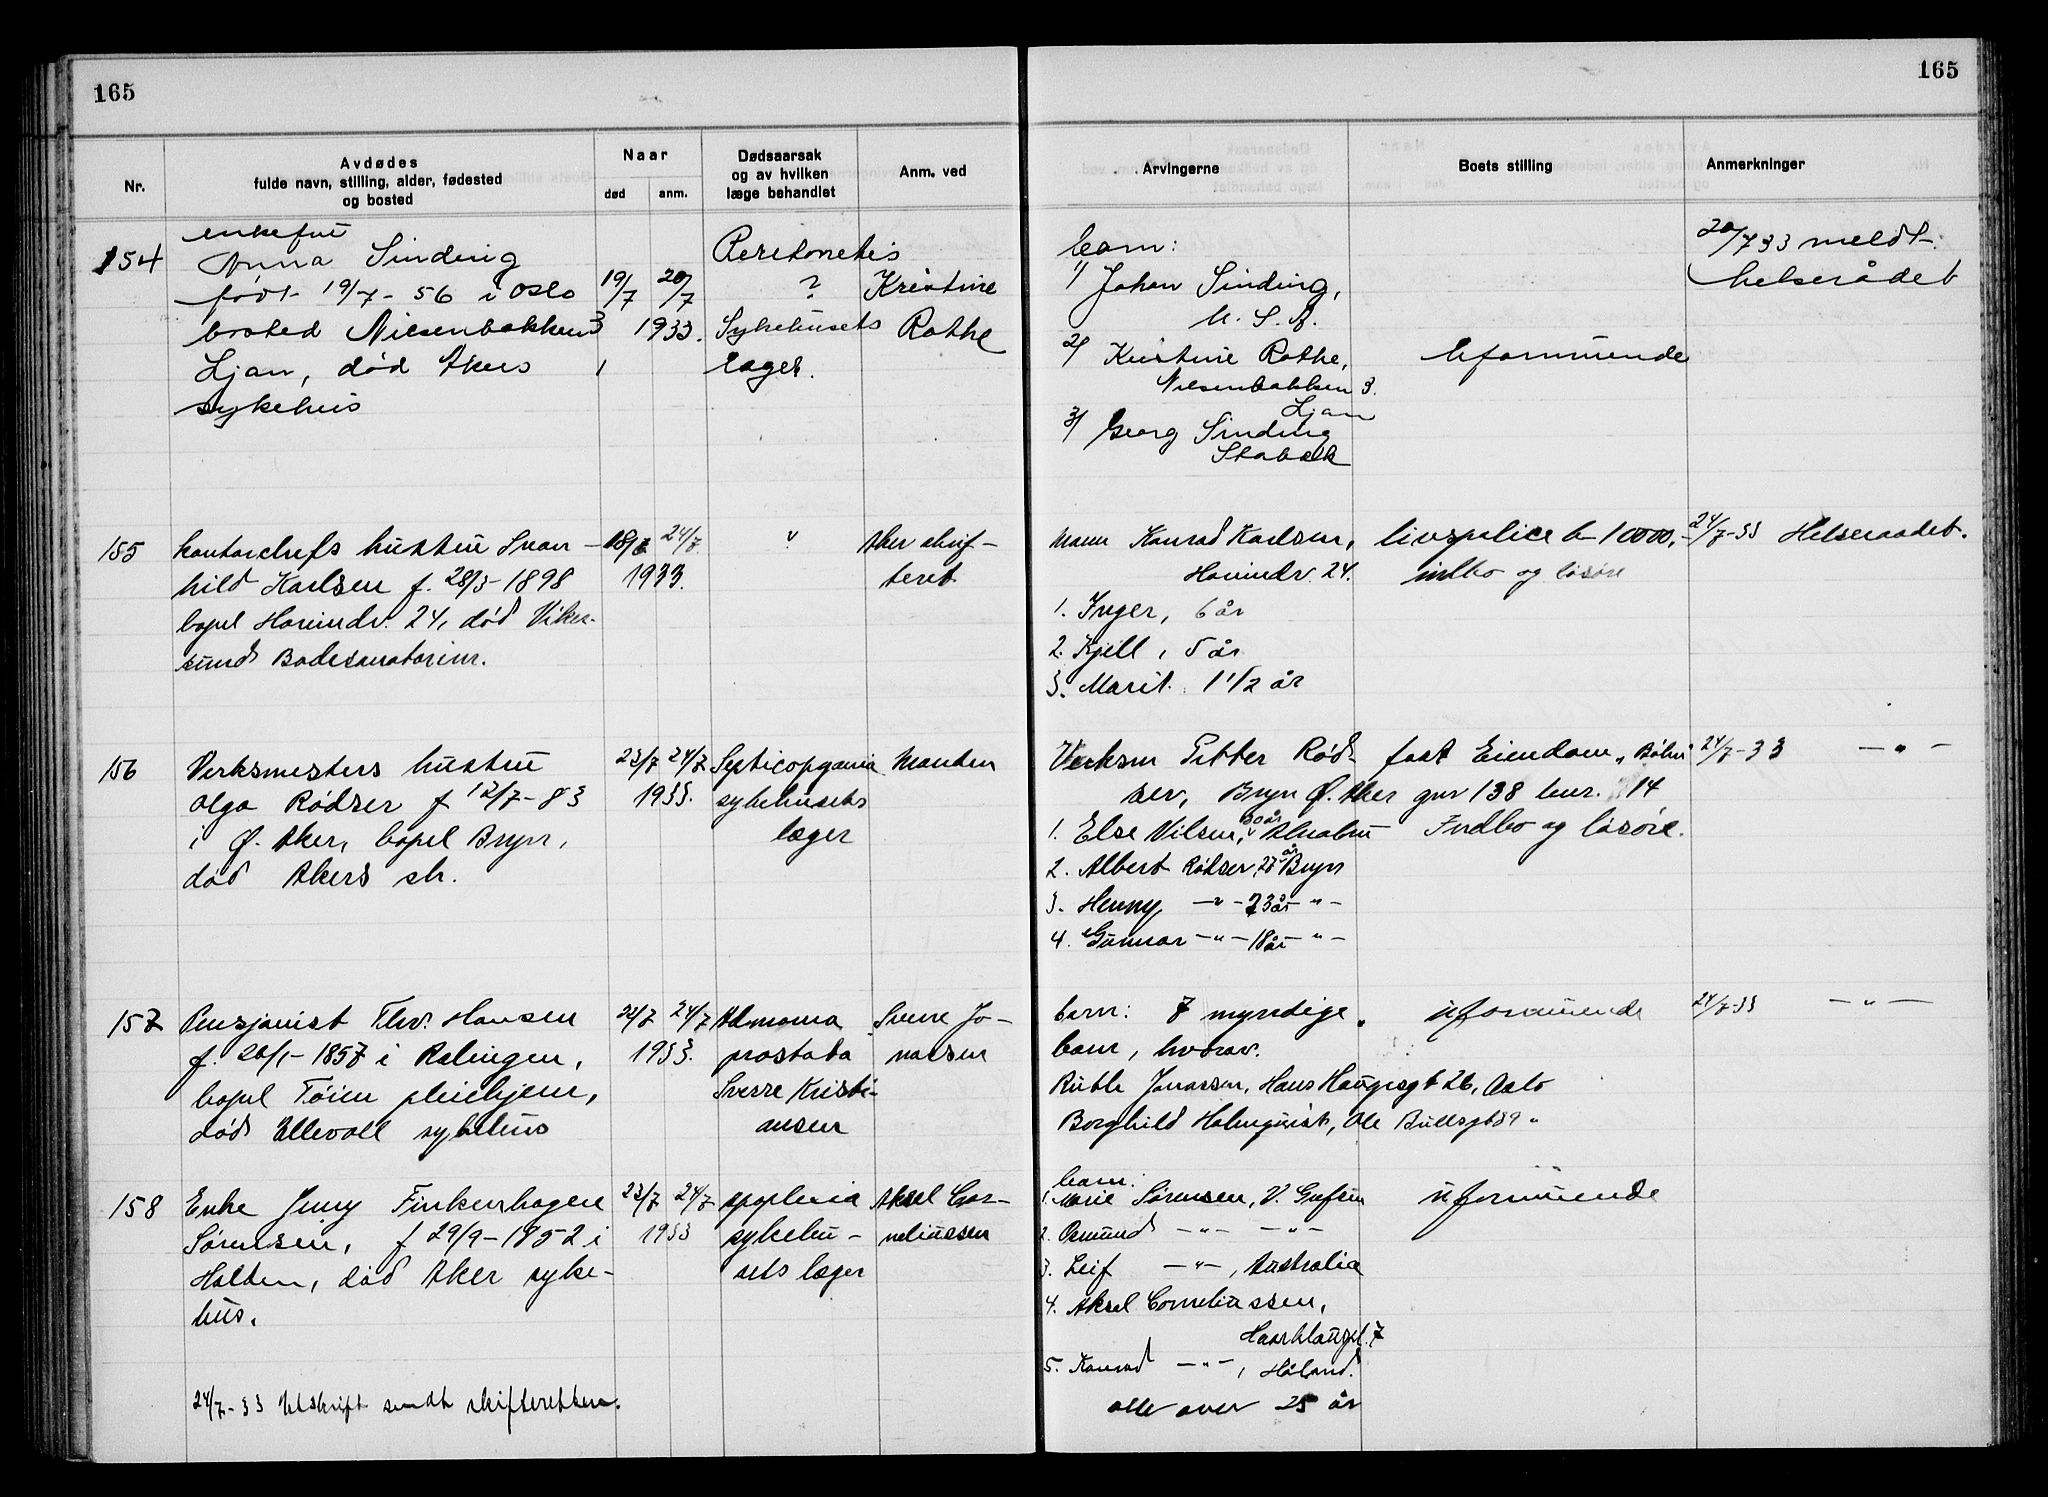 165
165
Nr.
Avdødes
fulde navn, stilling, alder, fødested
og bosted
Naar
død
anm.
Dødsaarsak
og av hvilken
læge behandlet
Anm. ved
Arvingerne
Boets stilling
Anmerkninger
154
enkefru
Anna Sinding
født 19/7-56 i Oslo
bosted Nilsenbakken 3
Ljan, død Akers
sykehus
19/7 20/7
1933.
Peritonetis
?
Sykehusets
læger.
Kristine
Rothe
barn:
1/ Johan Sinding,
U. S. A.
2/ Kristine Rothe,
Nilsenbakken 3.
Ljan
3/ Georg Sinding
Stabæk
Uformuende
20/7 33 meldt
helserådet
155
kontorchefs hustru Svan-
hild Karlsen f. 28/3-1898
bopel Hovindv. 24, død Viker-
sund Badesanatorium.
18/7 24/7
1933.
?
Aker skif-
teret
Mann Konrad Karlsen,
Hovindv. 24.
1. Inger, 6 år
2. Kjell, 5 år
3. Marit. 1 1/2 år
livspolice kr 10000,-
indbo og løsøre
24/7-33 Helseraadet.
156
Verksmesters hustru
Olga Rødser f 12/7-83
i Ø. Aker, bopel Bryn,
død Akers sh.
23/7 24/7
1933.
Septicopyamia
sykehusets
læger
Manden
Verksm Petter Rød-
ser, Bryn Ø. Aker
1. Else Nilsen, 30 år Alnabru
2. Albert Rødser, 27 år Bryn
3. Henny -"- 23 år -"-
4. Gunnar -"- 18 år -"-
fast Eiendom,
gnr 138 bnr. 14
Indbo og løsøre.
24/7-33 -"-
157
Pensjonist Thv. Hansen
f. 20/1-1857 i Rælingen,
bopel Tøien pleiehjem,
død Ullevoll sykehus
22/7 24/7
1933.
Admoma
prostata
Sverre Kristi-
ansen
Sverre Jo-
nassen
barn: 7 myndige
barn, hvorav.
Ruth Jonassen, Hans Haugesgt 26, Oslo
Borghild Holmquist, Ole Bullsgt 39 "
uformuende
24/7-33 -"-
158
Enke Jenny Finkenhagen
Sørensen, f 29/9-1852 i
Halden, død Aker syke-
hus.
23/7 24/7
1933
apoplexia
sykehu-
sets læger
Aksel Cor-
neliussen
barn:
1. Marie Sørensen, V. Grefsen
2. Osmund -"- -"-
3. Leif -"-, Australia
4. Aksel Corneliussen,
Haarklougt. 7
5. Konrad -"-, Høland.
alle over 25 år
uformuende
24/7-33 Utskrift sendt skifteretten.